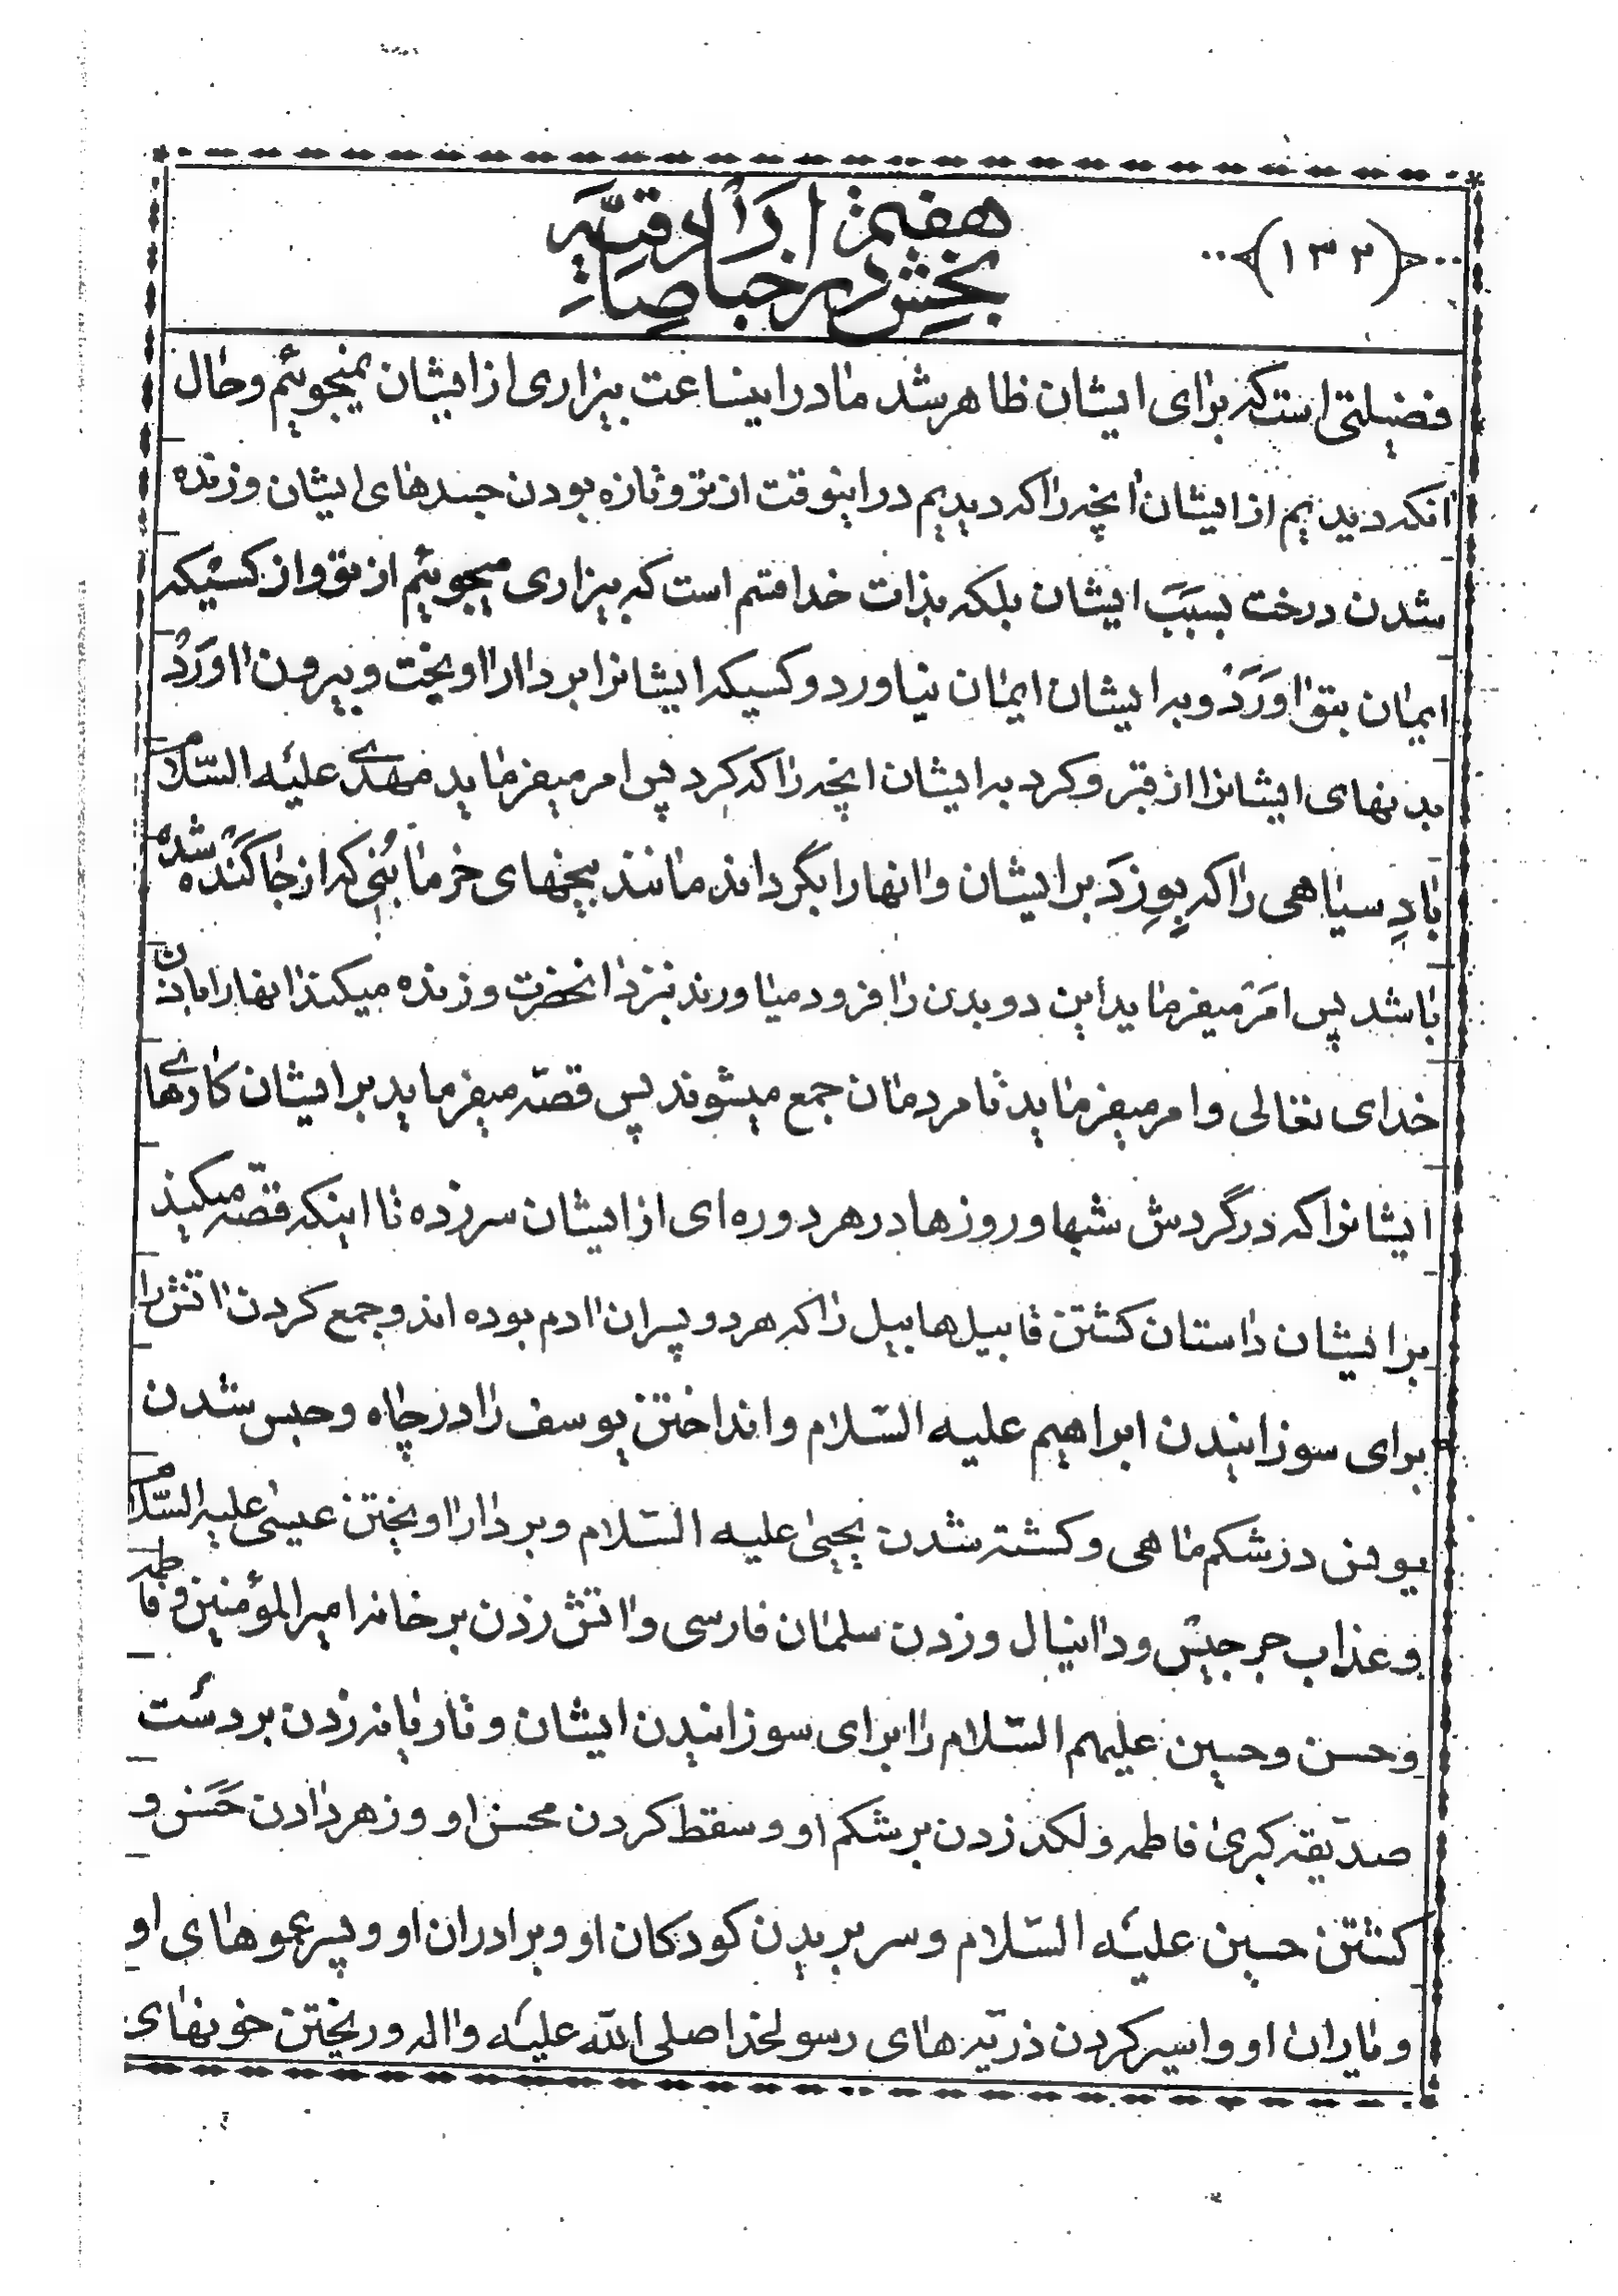 (۱۳۲)
بخش هفتم
در اخبار صادقیه
فضیلتی است که برای ایشان ظاهر شد ما در اینساعت بیزاری از ایشان نمیجوئیم و حال
آنکه دیدیم از ایشان آنچه را که دیدیم در اینوقت از تر و تازه بودن جسدهای ایشان و زنده
شدن درخت بسبب ایشان بلکه بذات خدا قسم است که بیزاری میجوئیم از تو و از کسیکه
ایمان بتو آورد و به ایشان ایمان نیاورد و کسیکه ایشانرا بر دار آویخت و بیرون آورد
بدنهای ایشانرا از قبر و کرد به ایشان آنچه را که کرد پس امر میفرماید مهدی علیه السّلام
باد سیاهی را که بوزد بر ایشان و آنها را بگرداند مانند بیخهای خرمابنی که از جا کنده شده
باشد پس امر میفرماید این دو بدن را فرود میاورند بنزد آنحضرت و زنده میکند آنها را باذن
خدای تعالی و امر میفرماید تا مردمان جمع میشوند پس قصّه میفرماید بر ایشان کارهای
ایشانرا که در گردش شبها و روزها در هر دوره ای از ایشان سر زده تا اینکه قصّه میکند
بر ایشان داستان کشتن قابیل هابیل را که هر دو پسران آدم بوده اند و جمع کردن آتش را
برای سوزانیدن ابراهیم علیه السّلام و انداختن یوسف را در چاه و حبس شدن
یونس در شکم ماهی و کشته شدن یحیی علیه السّلام و بر دار آویختن عیسی علیه السّلام
و عذاب جرجیس و دانیال و زدن سلمان فارسی و آتش زدن بر خانه امیرالمؤمنین و فاطمه
و حسن و حسین علیهم السّلام را برای سوزانیدن ایشان و تازیانه زدن بر دست
صدّیقه کبری فاطمه و لگد زدن بر شکم او و سقط کردن محسن او و زهر دادن حسن و
کشتن حسین علیه السّلام و سر بریدن کودکان او و برادران او و پسر عموهای او
و یاران او و اسیر کردن ذرّیّه های رسولخدا صلی الله علیه و آله و ریختن خونهای